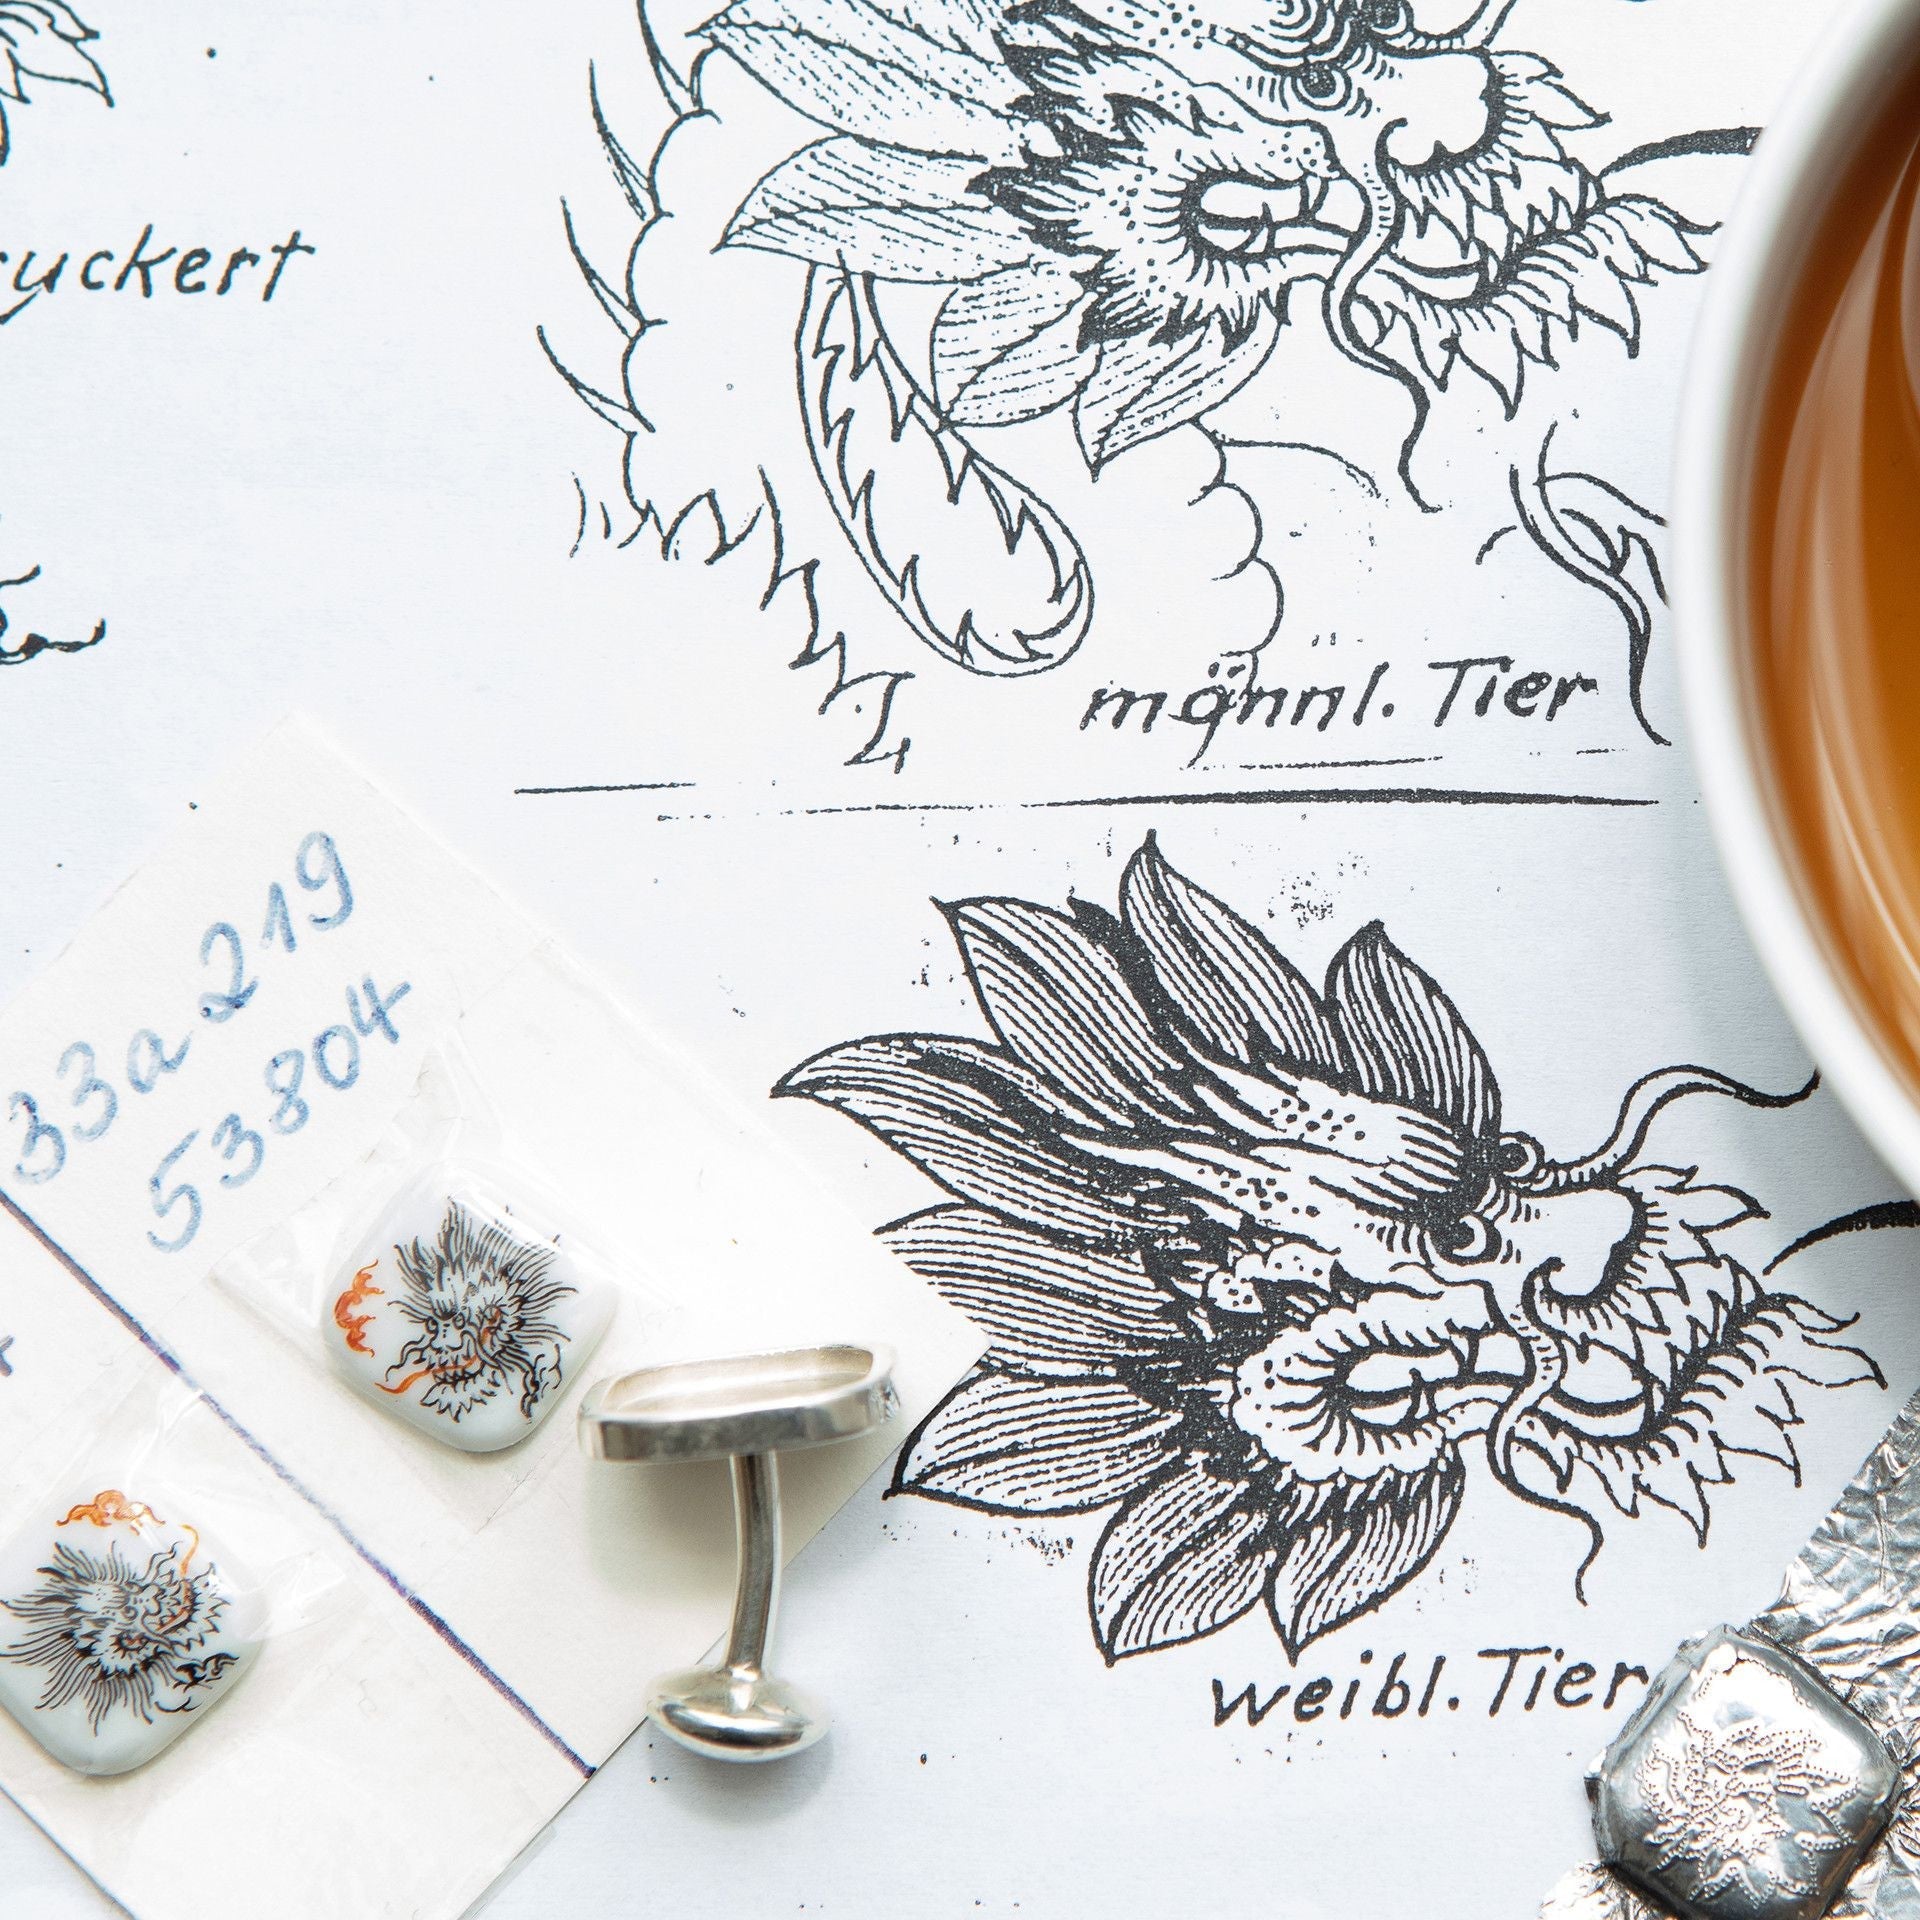 männl. Tier
33a 219
53804
weibl. Tier